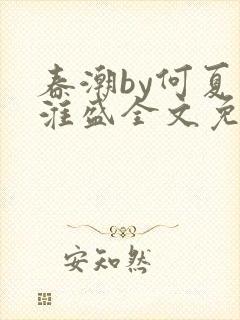 春潮by何夏
淮盛全文免
安知然